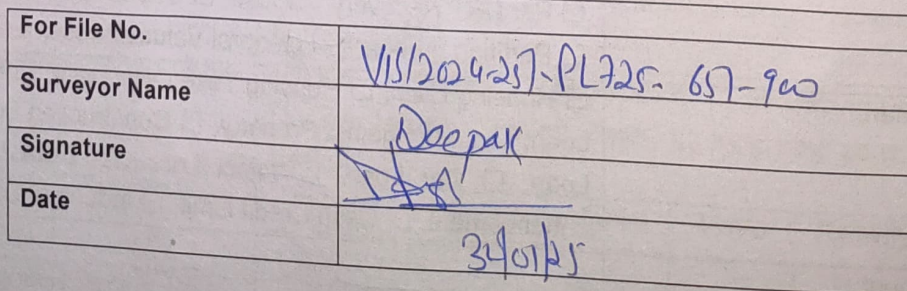 For File No. VIS/2024-25)-PL725- 657-900
Surveyor Name Deepak
Signature
Date 31/01/25